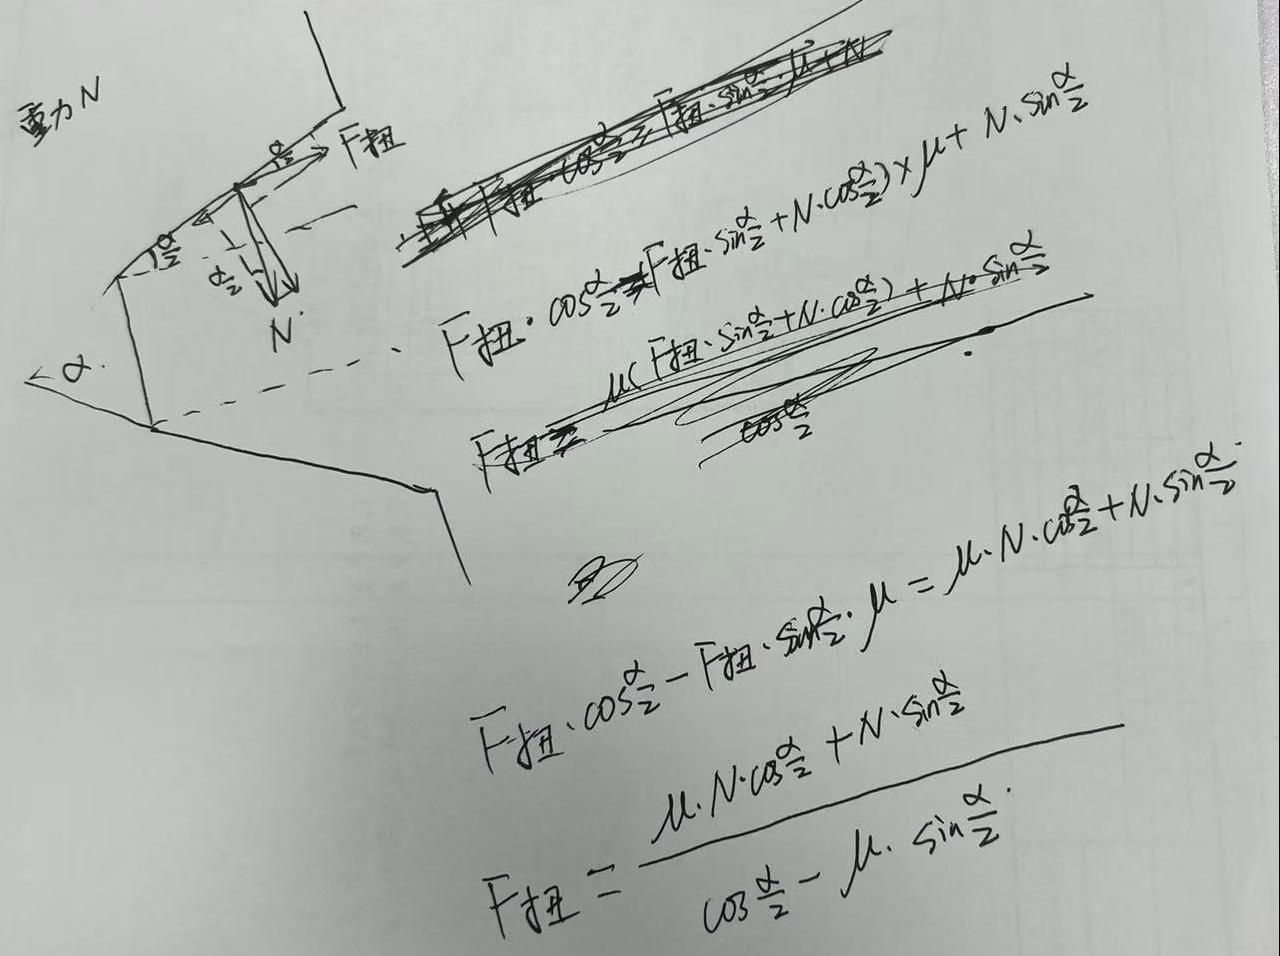 重力N
α/2
F扭
α/2
α/2
N
α
F扭·cosα/2=F扭·sinα/2·μ+N
F扭·cosα/2=(F扭·sinα/2+N·cosα/2)×μ+N·sinα/2
F扭=μ(F扭·sinα/2+N·cosα/2)+N·sinα/2
cosα/2
F扭·cosα/2-F扭·sinα/2·μ=μ·N·cosα/2+N·sinα/2
μ·N·cosα/2+N·sinα/2
F扭=
cosα/2-μ·sinα/2